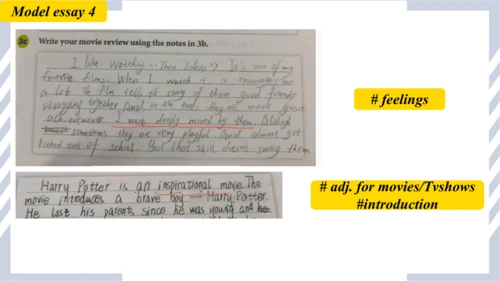 Model essay 4
3c Write your movie review using the notes in 3b.
I like It's one of my
favorite films. When I watch it, it encourages me
a lot. The film tells the story of three good friends
struggling together. And in the end, they all made great
achievements. I was deeply moved by them. Although
sometimes they are very playful. And almost got
kicked out of school. But that still doesn't them
# feelings
Harry Potter is an inspirational movie. The
movie introduces a brave boy — Harry Potter.
He lost his parents since he was young and he
# adj. for movies/Tvshows
#introduction